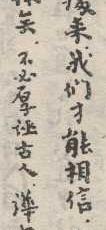 来,我们才能相信.
矣.不必厚诬古人